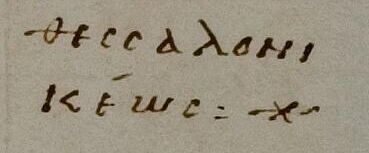 θεccαλονι
κέωc: ⁜